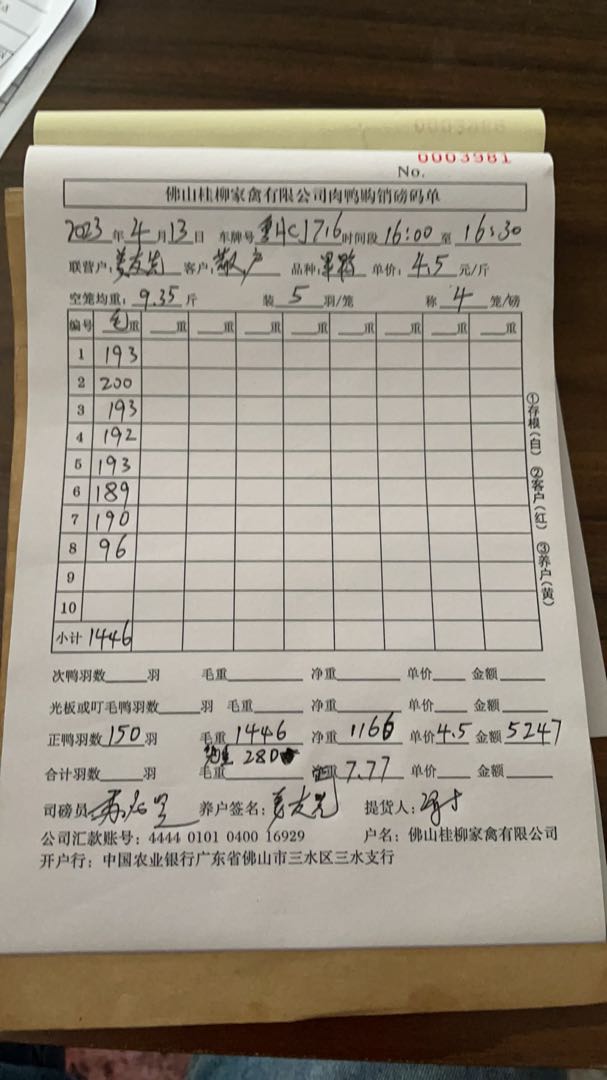 0003981
No.
佛山桂柳家禽有限公司肉鸭购销磅码单
2023年4月13日 车牌号 HCJ716 时间段 16:00 至 16:30
联营户: 客户:散户 品种: 单价:4.5元/斤
空笼均重:9.35斤 装5羽/笼 称4笼/磅
编号 毛重 重 重 重 重 重 重 重 重
1 193
2 200
3 193
4 192
5 193
6 189
7 190
8 96
9
10
小计 1446
①存根(白) ②客户(红) ③养户(黄)
次鸭羽数 羽 毛重 净重 单价 金额
光板或叮毛鸭羽数 羽 毛重 净重 单价 金额
正鸭羽数150羽 毛重1446 净重1166 单价4.5 金额5247
280
合计羽数 羽 毛重 净重 7.77 单价 金额
司磅员 养户签名: 提货人:
公司汇款账号:4444 0101 0400 16929 户名:佛山桂柳家禽有限公司
开户行:中国农业银行广东省佛山市三水区三水支行